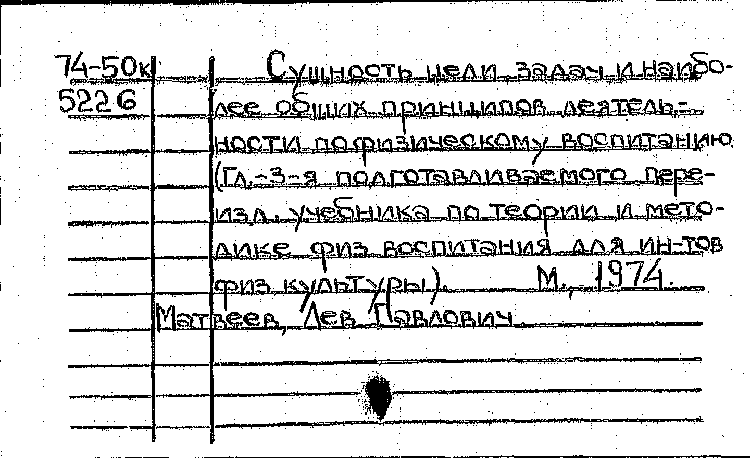 74-50к Сущность цели задач и наибо-
5226 лее общих принципов деятель-
ности по физическому воспитанию
(Гл.-3-я подготавливаемого пере-
изд. учебника по теории и мето-
дике физ воспитания для ин-тов
физ культуры). М., 1974.
Матвеев, Лев Павлович